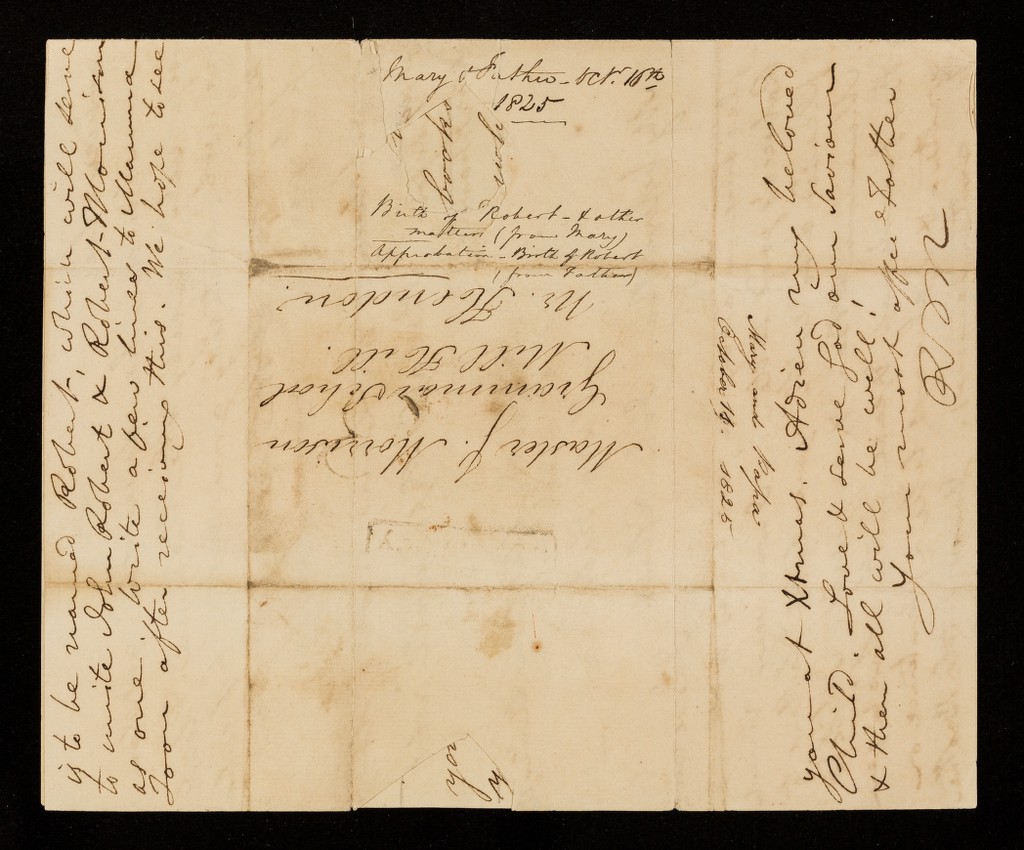 is to be named Robert, which will serve
to unite John Robert & Robert Morrison
as one. Write a few lines to Mamma
soon after receiving this. We hope to see
you at Xtmas. Adieu my beloved
Child. Love & serve God our Saviour
& then all will be well!
Your most affec.e Father
RM
Mary & Father - Oct. 18th
1825
books
Birth of Robert - & other
matters (from Mary)
Approbation - Birth of Robert
(from Father)
Master J. Morrison
Grammar School
Mill Hill.
Nr. Hendon.
Mary and Papa
October 18. 1825
you